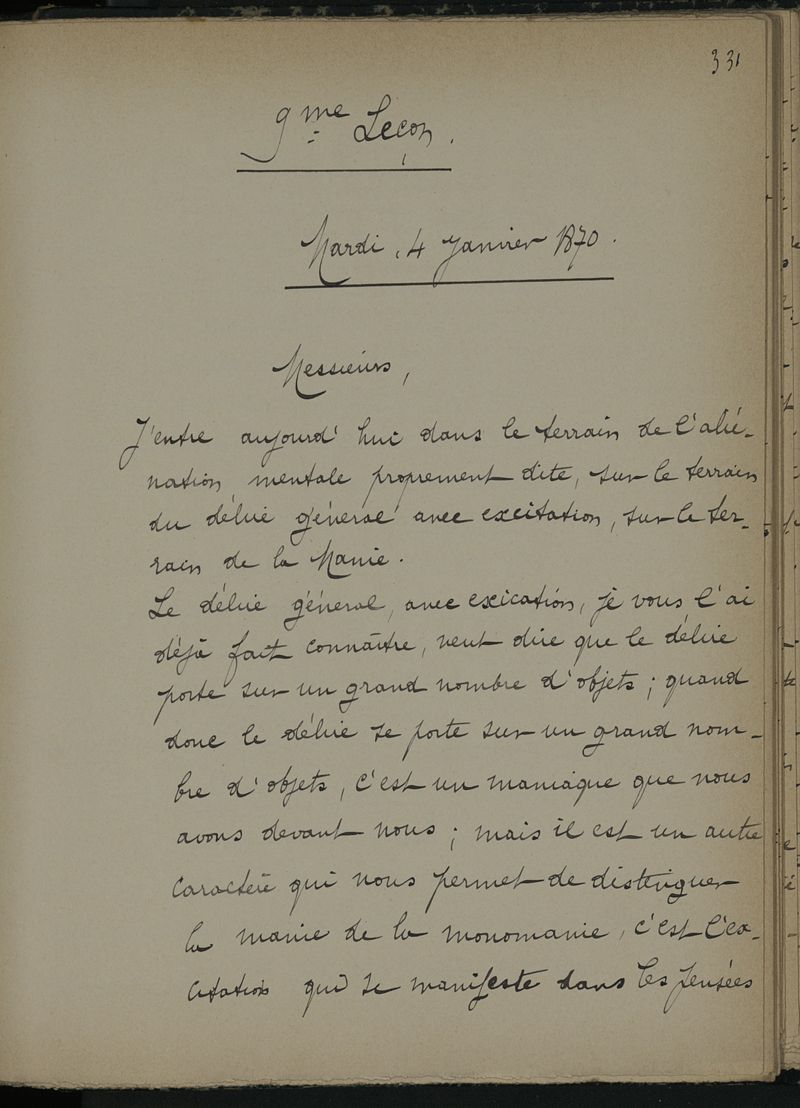 331
9me Leçon.
Mardi, 4 Janvier 1870.
Messieurs,
J'entre aujourd'hui dans le terrain de l'alié-
nation mentale proprement dite, sur le terrain
du délire général avec excitation, sur le ter-
rain de la Manie.
Le délire général, avec exication, je vous l'ai
déjà fait connaître, veut dire que le délire
porte sur un grand nombre d'objets; quand
donc le délire se porte sur un grand nom-
bre d'objets, c'est un maniaque que nous
avons devant nous; mais il est un autre
caractère qui nous permet de distinguer
la manie de la monomanie, c'est l'ex-
citation qui se manifeste dans les pensées